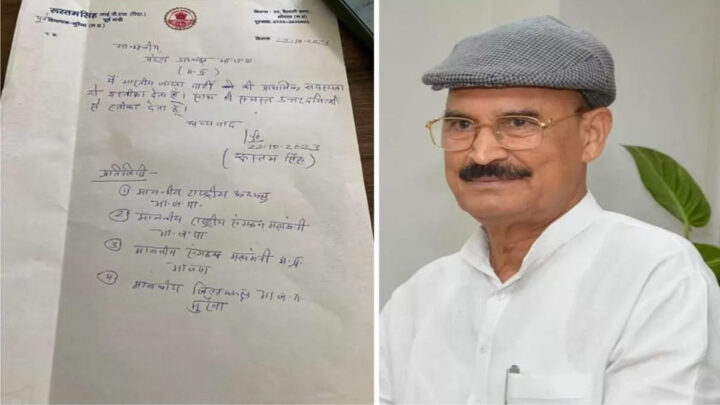 रुस्तम सिंह आई.पी.एस (रिटा.)
पूर्व मंत्री
पूर्व विधायक-मुरैना (म.प्र.)
भोपाल (म.प्र.)
दिनांक 22.10.2023
माननीय
प्रदेश अध्यक्ष भा.ज.पा
(म.प्र.)
मैं भारतीय जनता पार्टी की प्राथमिक सदस्यता
से इस्तीफा देता हूँ। साथ ही समस्त
से इस्तीफा देता हूँ।
धन्यवाद
22.10.2023
(रुस्तम सिंह)
प्रतिलिपी -
① माननीय राष्ट्रीय अध्यक्ष
भा.ज.पा.
② माननीय राष्ट्रीय संगठन महामंत्री
भा.ज.पा
③ माननीय संगठन महामंत्री म.प्र.
भाजपा
④ माननीय जिलाध्यक्ष भा.ज.पा
मुरैना